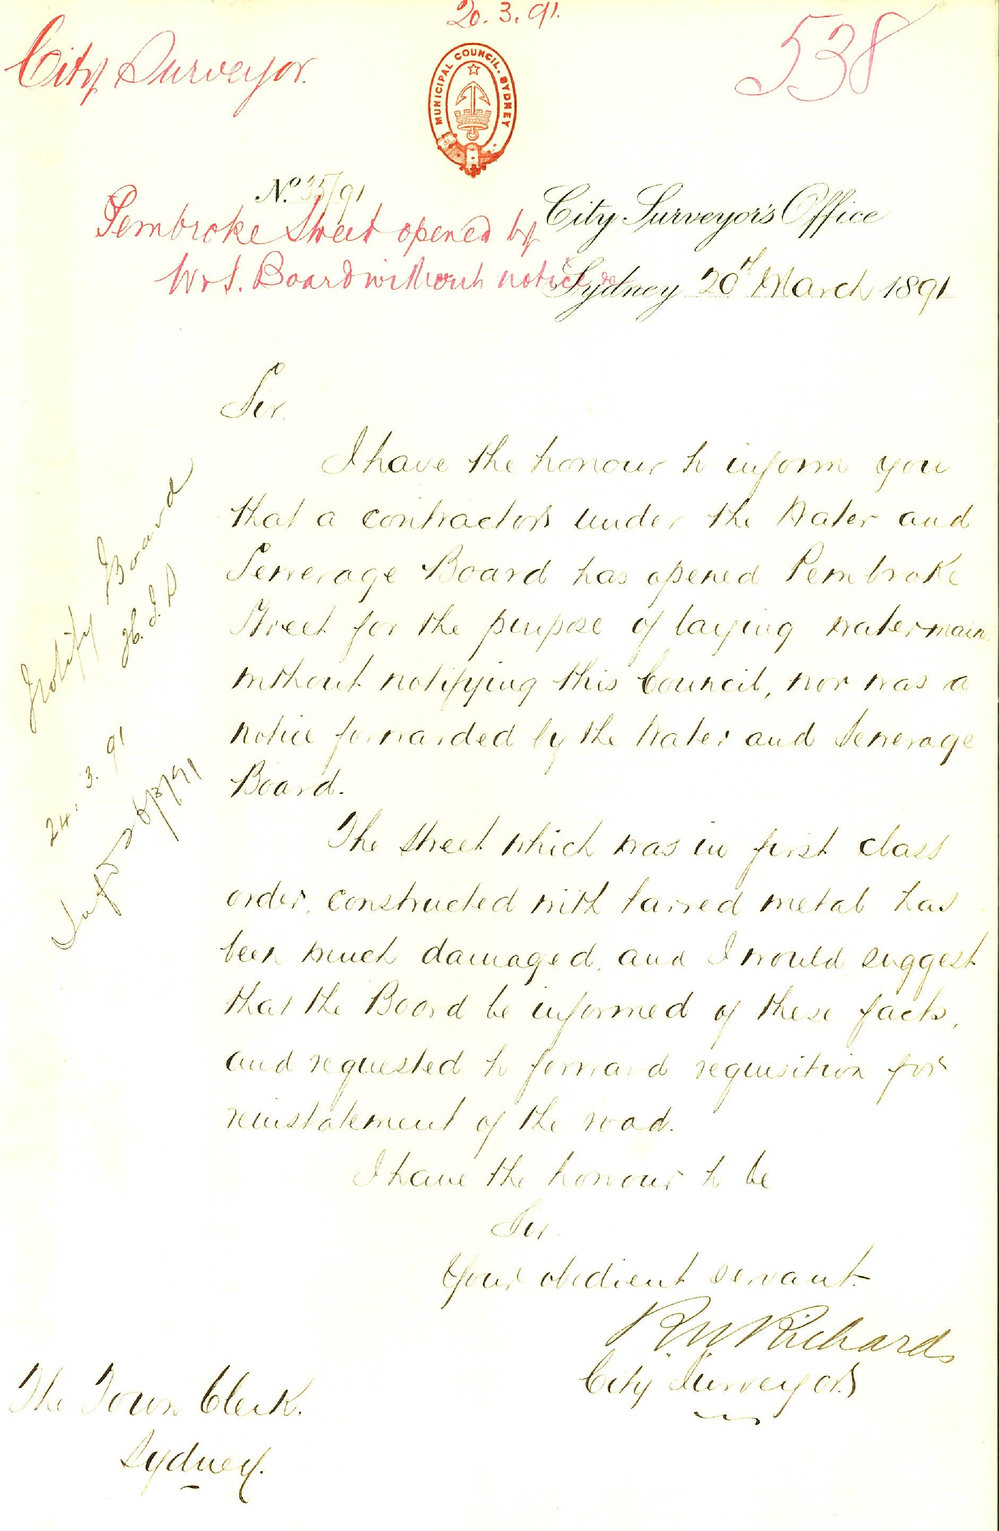 20.3.91.
City Surveyor.
538
MUNICIPAL COUNCIL. SYDNEY
No. 35/91
Pembroke Street opened by
W & S. Board without notice &c
City Surveyor's Office
Sydney 20th March 1891
Sir.
I have the honour to inform you
that a contractor under the Water and
Sewerage Board has opened Pembroke
Street for the purpose of laying water main
without notifying this Council, nor was a
notice forwarded by the Water and Sewerage
Board.
The street which was in first class
order, constructed with tarred metal has
been much damaged, and I would suggest
that the Board be informed of these facts,
and requested to forward requisition for
reinstatement of the road.
I have the honour to be
Sir
Your obedient servant
R W Richards
City Surveyor
The Town Clerk.
Sydney.
Notify Board
24.3.91
26/3/91